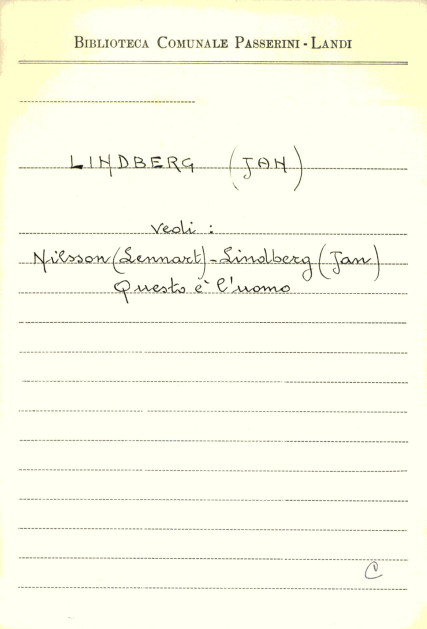 BIBLIOTECA COMUNALE PASSERINI - LANDI
LINDBERG (JAN)
Vedi :
Nilsson (Lennart) - Lindberg (Jan)
Questo è l'uomo
C